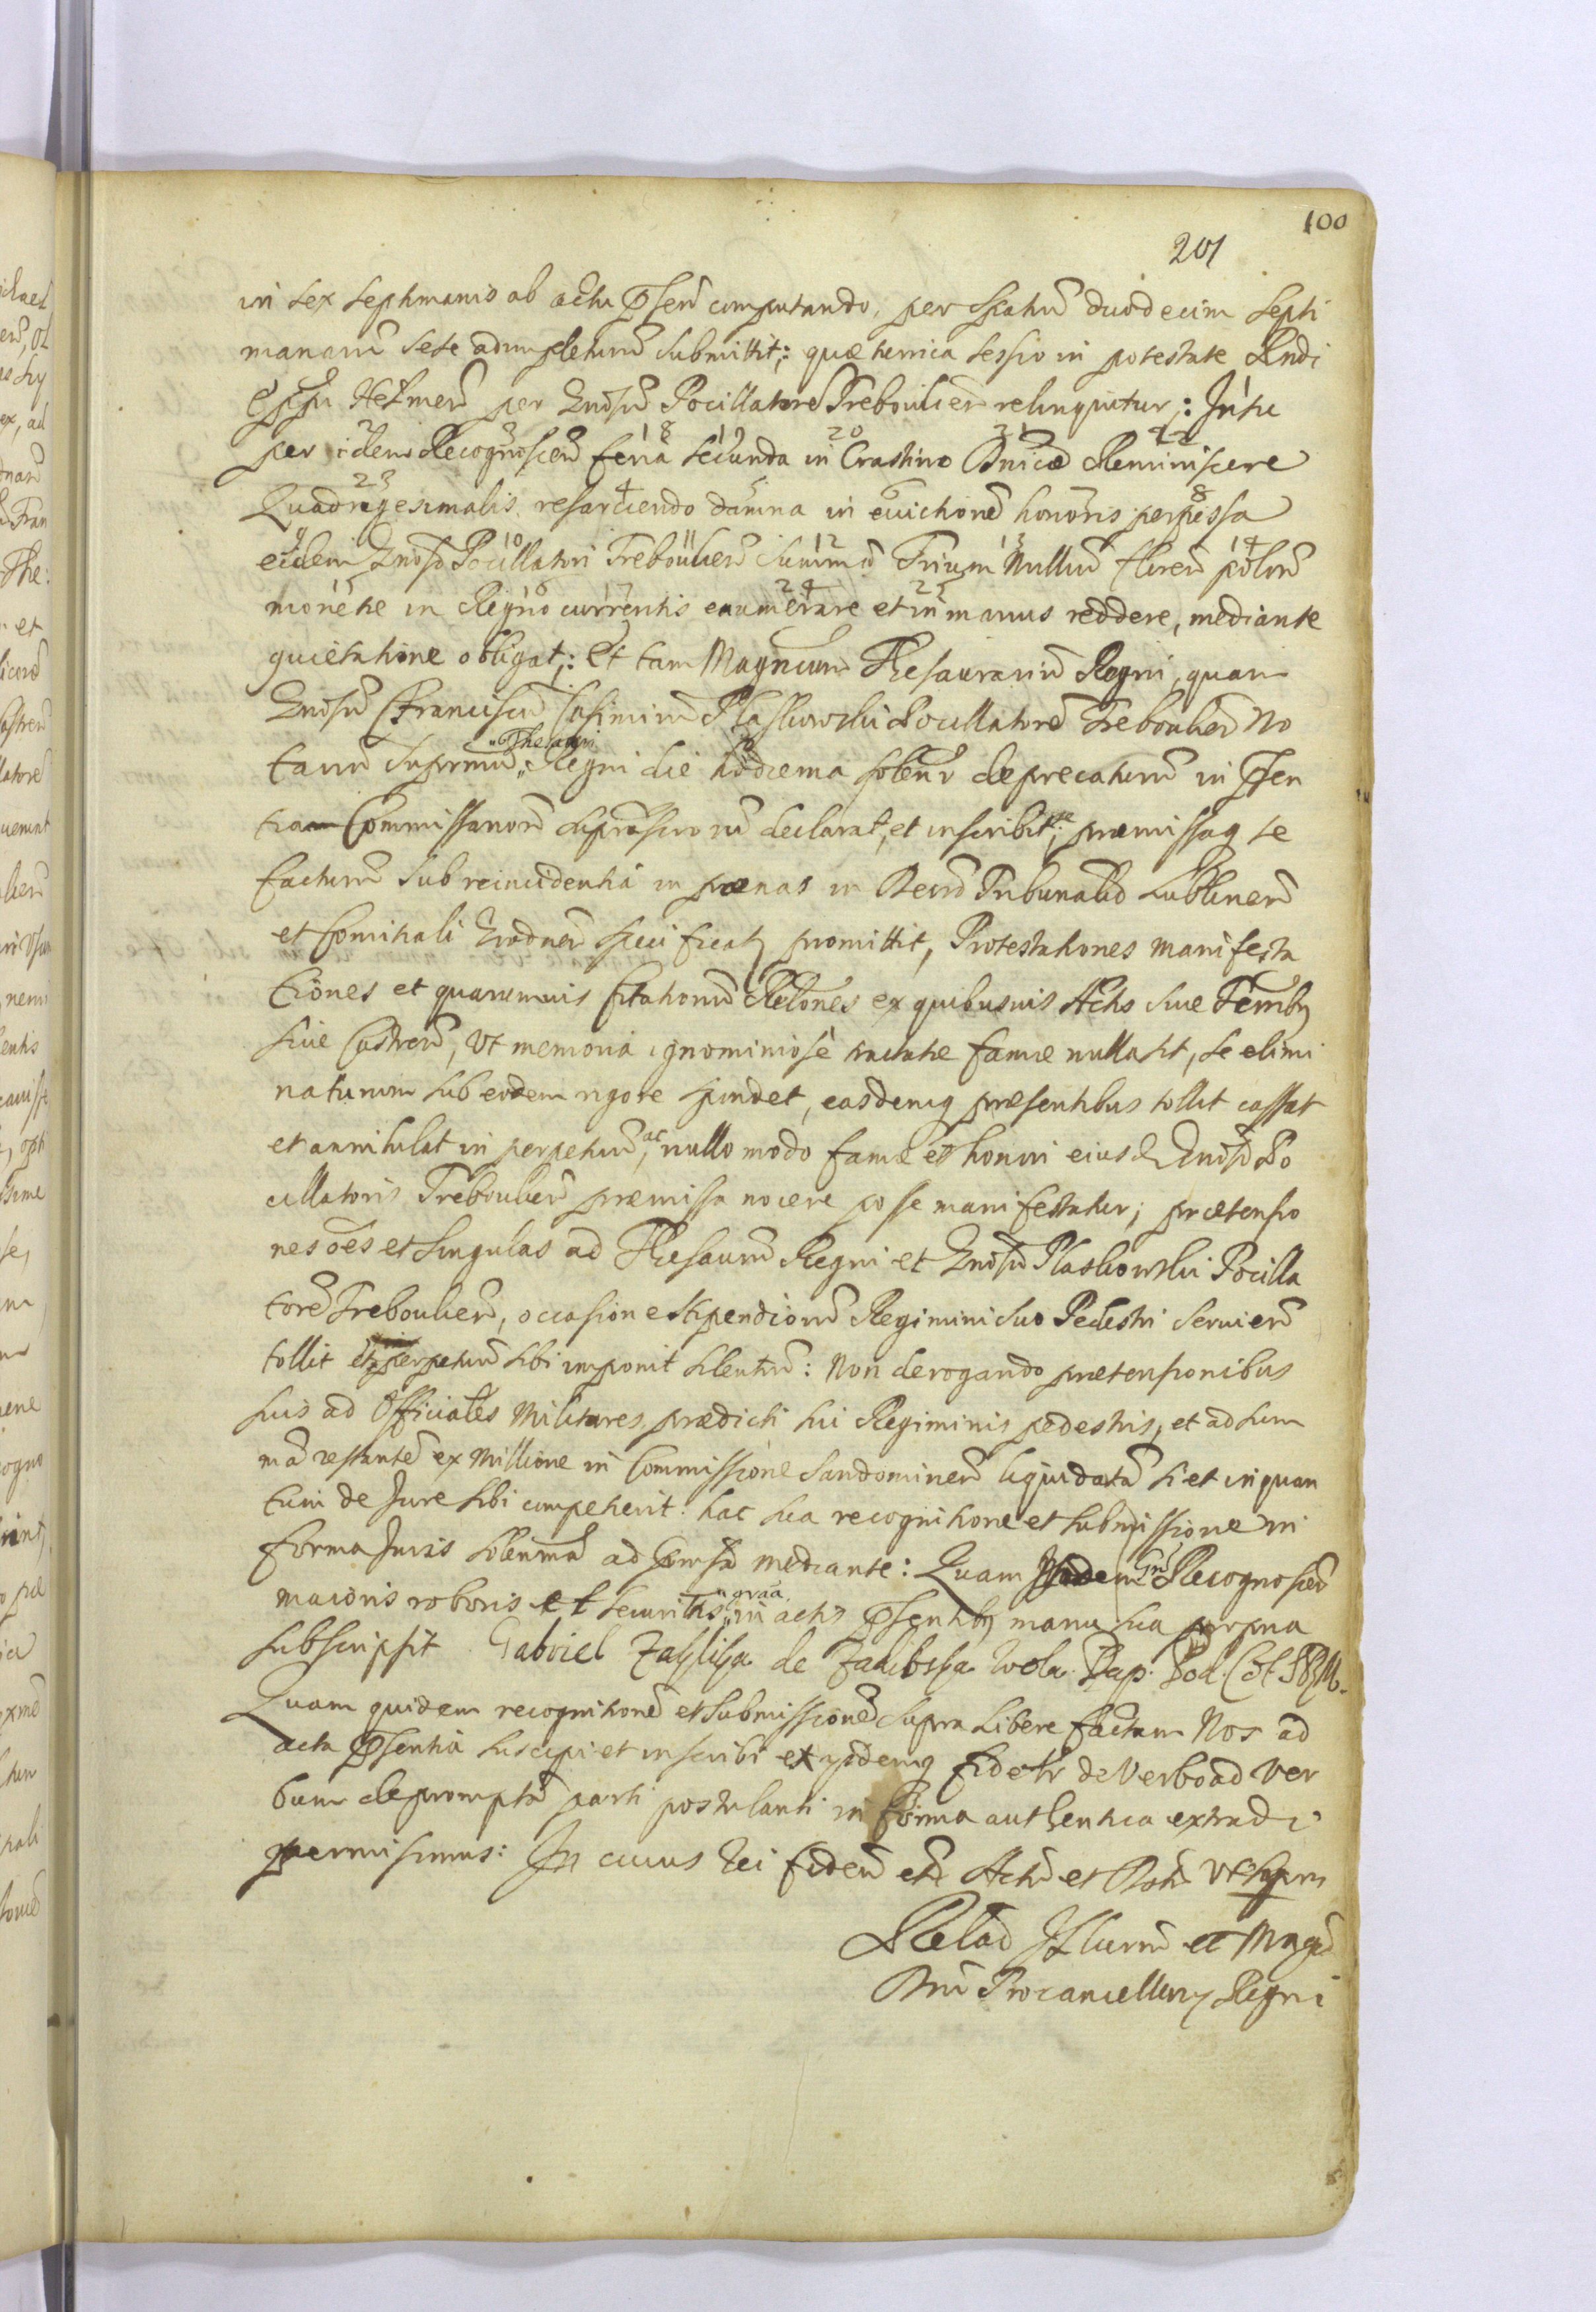 100
201
in sex septimanis ab actu pñsenī computando, per spatiū duodecim septi
manarū sese adimpleturū submittit; quæ terrica sessio in potestate Rndi
Eppi Helmeñ per Gnosū Pocillatorē Treboulieñ relinquitur: Insu
per idem Recognosceñ feria secunda in Crastino Dnicæ Reminiscere
Quadragesimalis resarciendo damna in euictionē honoris perpessa
eidem Gnoso Pocillatori Treboulieñ summā Trium Millium floreñ polon
monetæ in Regno currentis enumerare et in manus reddere, mediante
quietatione obligat; Et tam Magncum Thesaurariū Regni, quam
Gnosū Franciscū Casimirū Plaskowski Pocillatorē Treboulieñ No
tariū Supremū Thesauri Regni die hodierna solenr deprecaturū in pñsen
tia Commissariorū suprascriptorū declarat, et inscribit se; præmissaq se
facturū sub reincidentiâ in pænas in Decreto Tribunalis Lublineñ
et Comitiali Grodneñ specificatas promittit, Protestationes manifesta
tiones et quarumuis Citationū Relones ex quibusuis Actis siue Terribus
siue Castreñ, Vt memoria ignominiosè tractatæ famæ nulla sit, se elimi
naturum sub eodem rigore spondet, easdemq præsentibus tollit cassat
et annihilat in perpetuū, ac nullo modo famæ et honori eiusd Gnosi Po
cillatoris Treboulieñ præmissa nocere posse manifestatur; prætensio
nes oēs et singulas ad Thesaurū Regni et Gnosū Plaskowski Pocilla
torē Treboulieñ, occasione stipendiorū Regimini suo Pedestri seruieñ
tollit et perpetuū sibi imponit silentiū: Non derogando prætensionibus
suis ad Officiales Militares prædicti sui Regiminis pedestris, et ad sum
mā restantē ex Millione in Commissione Sandomireñ liquidatā si et in quan
tum de Jure sibi competierit: hac sua recognitione et submissione in
forma Juris solenni ad præmissa mediante: Quam Idem Gñs Recognosceñ
maioris roboris et securitatis graa in actis pñsentibus manu sua propria
subscripsit Gabriel Zaklika de Zaklicka Wola Dap. Pod. Cæt. SRM.
Quam quidem recognitionē et submissionē supra libere factam Nos ad
acta pñsentia suscipi et inscribi exq ijsdemq fideliter de Verbo ad Ver
bum depromptā parti postulanti in forma authentica extradi
permisimus: In cuius Rei fidem etc Actū et Datū Vt supra
Relað Illrmi et Magci
Dni Procancellarij Regni